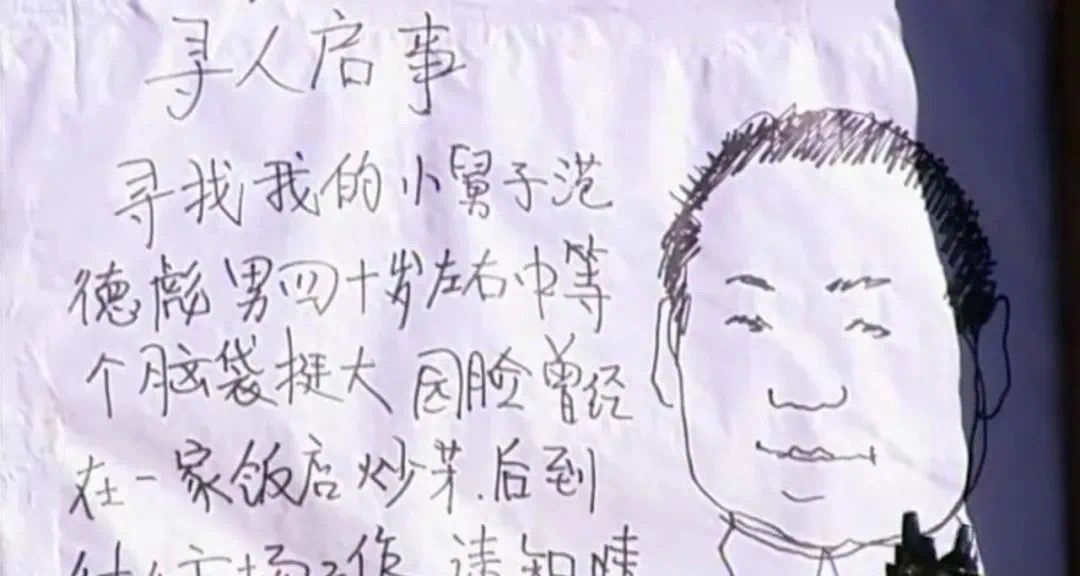 寻人启事
寻找我的小舅子范
德彪男四十岁左右中等
个脑袋挺大 园脸曾经
在一家饭店炒菜.后到
市场工作 请知情